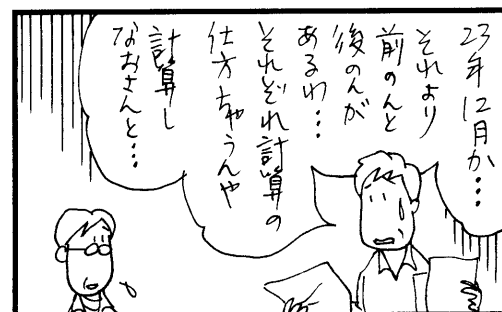 23年12月か・・・
それより
前のんと
後のんが
あるわ・・・
それぞれ計算の
仕方ちゃうんや
計算し
なおさんと・・・